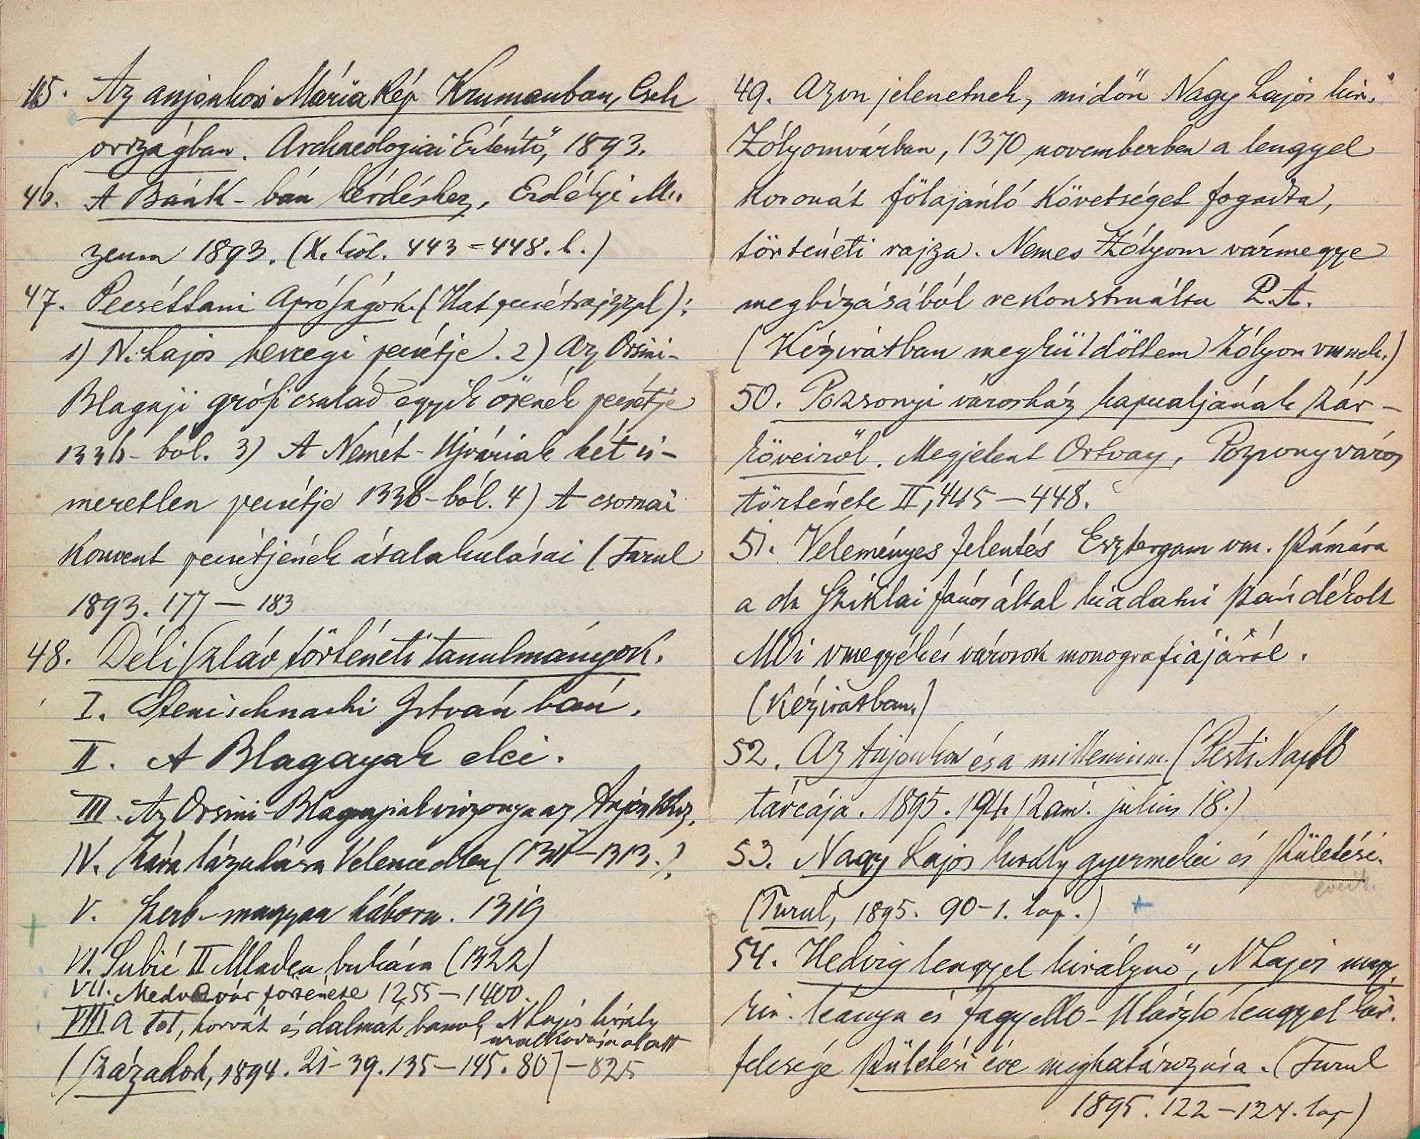 45. Az anjoukori Mária kép Krumauban, Cseh
országban. Archaeologiai Értesítő, 1893.
46. A Bánk-bán kérdéshez, Erdélyi Mu-
zeum 1893. (X. köt. 443=448. l.)
47. Pecséttani Apróságok. (Hat pecsétrajzzal):
1) N. Lajos hercegi pecsétje. 2) Az Orsini-
Blagaji gróf család egyik ősének pecsétje
1336-ból. 3) A Német-Ujváriak két is-
meretlen pecsétje 1336-ból. 4) A csornai
konvent pecsétjének átalakulásai (Turul
1893. 177—183
48. Déliszláv történeti tanulmányok.
I. Stenischnaki István bán.
II. A Blagayak elei.
III. Az Orsini-Blagajiak viszonya az Anjoukhoz.
IV. Zára lázadása Velencze ellen (1311—1313.)
V. Szerb-magyar háború. 1319
VI. Subić II Mladen bukása (1322)
VII. Medvevár története 1255—1400.
VIII A tót, horvát és dalmát bánok N Lajos király
uralkodása alatt
(Századok, 1894. 21-39. 135—145. 807—825
49. Azon jelenetnek, midőn Nagy Lajos kir.
Zólyomvárban, 1370 novemberben a lengyel
koronát fölajánló követséget fogadta,
történeti rajza. Nemes Zólyom vármegye
megbízásából rekonstruálta P. A.
(Kéziratban megküldöttem Zólyom vmnek.)
50. Pozsonyi városház kapualjának zár-
köveiről. Megjelent Ortvay, Pozsony város
története II, 445—448.
51. Véleményes jelentés Esztergam vm. számára
a dr Sziklai János által kiadatni szándékolt
vmegyék és városok monografiájáról.
(Kéziratban.)
52. Az Anjouk és a millenium. (Pesti Napló
tárcája. 1895. 194. szám. julius 18.)
53. Nagy Lajos király gyermekei és születési
éveik.
(Turul, 1895. 90-1. lap.)
54. Hedvig lengyel királynő, N Lajos magy.
kir. leánya és Jagyelló-Ulászló lengyel kir.
felesége születési éve meghatározása. (Turul
1895. 122—124. lap)